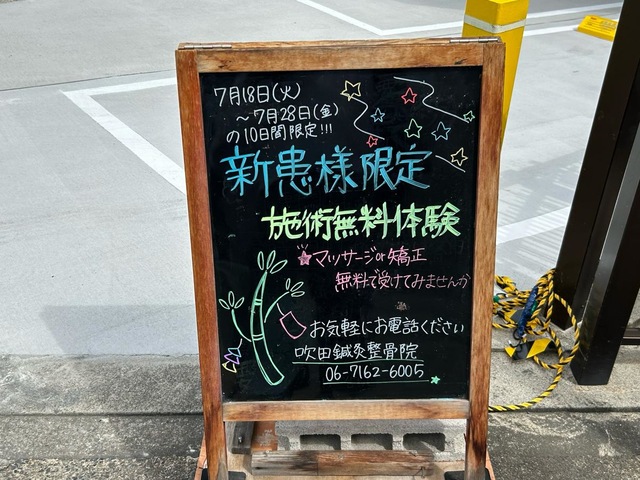 7月18日(火)
～7月28日(金)
の10日間限定!!!
新患様限定
施術無料体験
★マッサージor矯正
無料で受けてみませんか
お気軽にお電話ください
吹田鍼灸整骨院
06-7162-6005